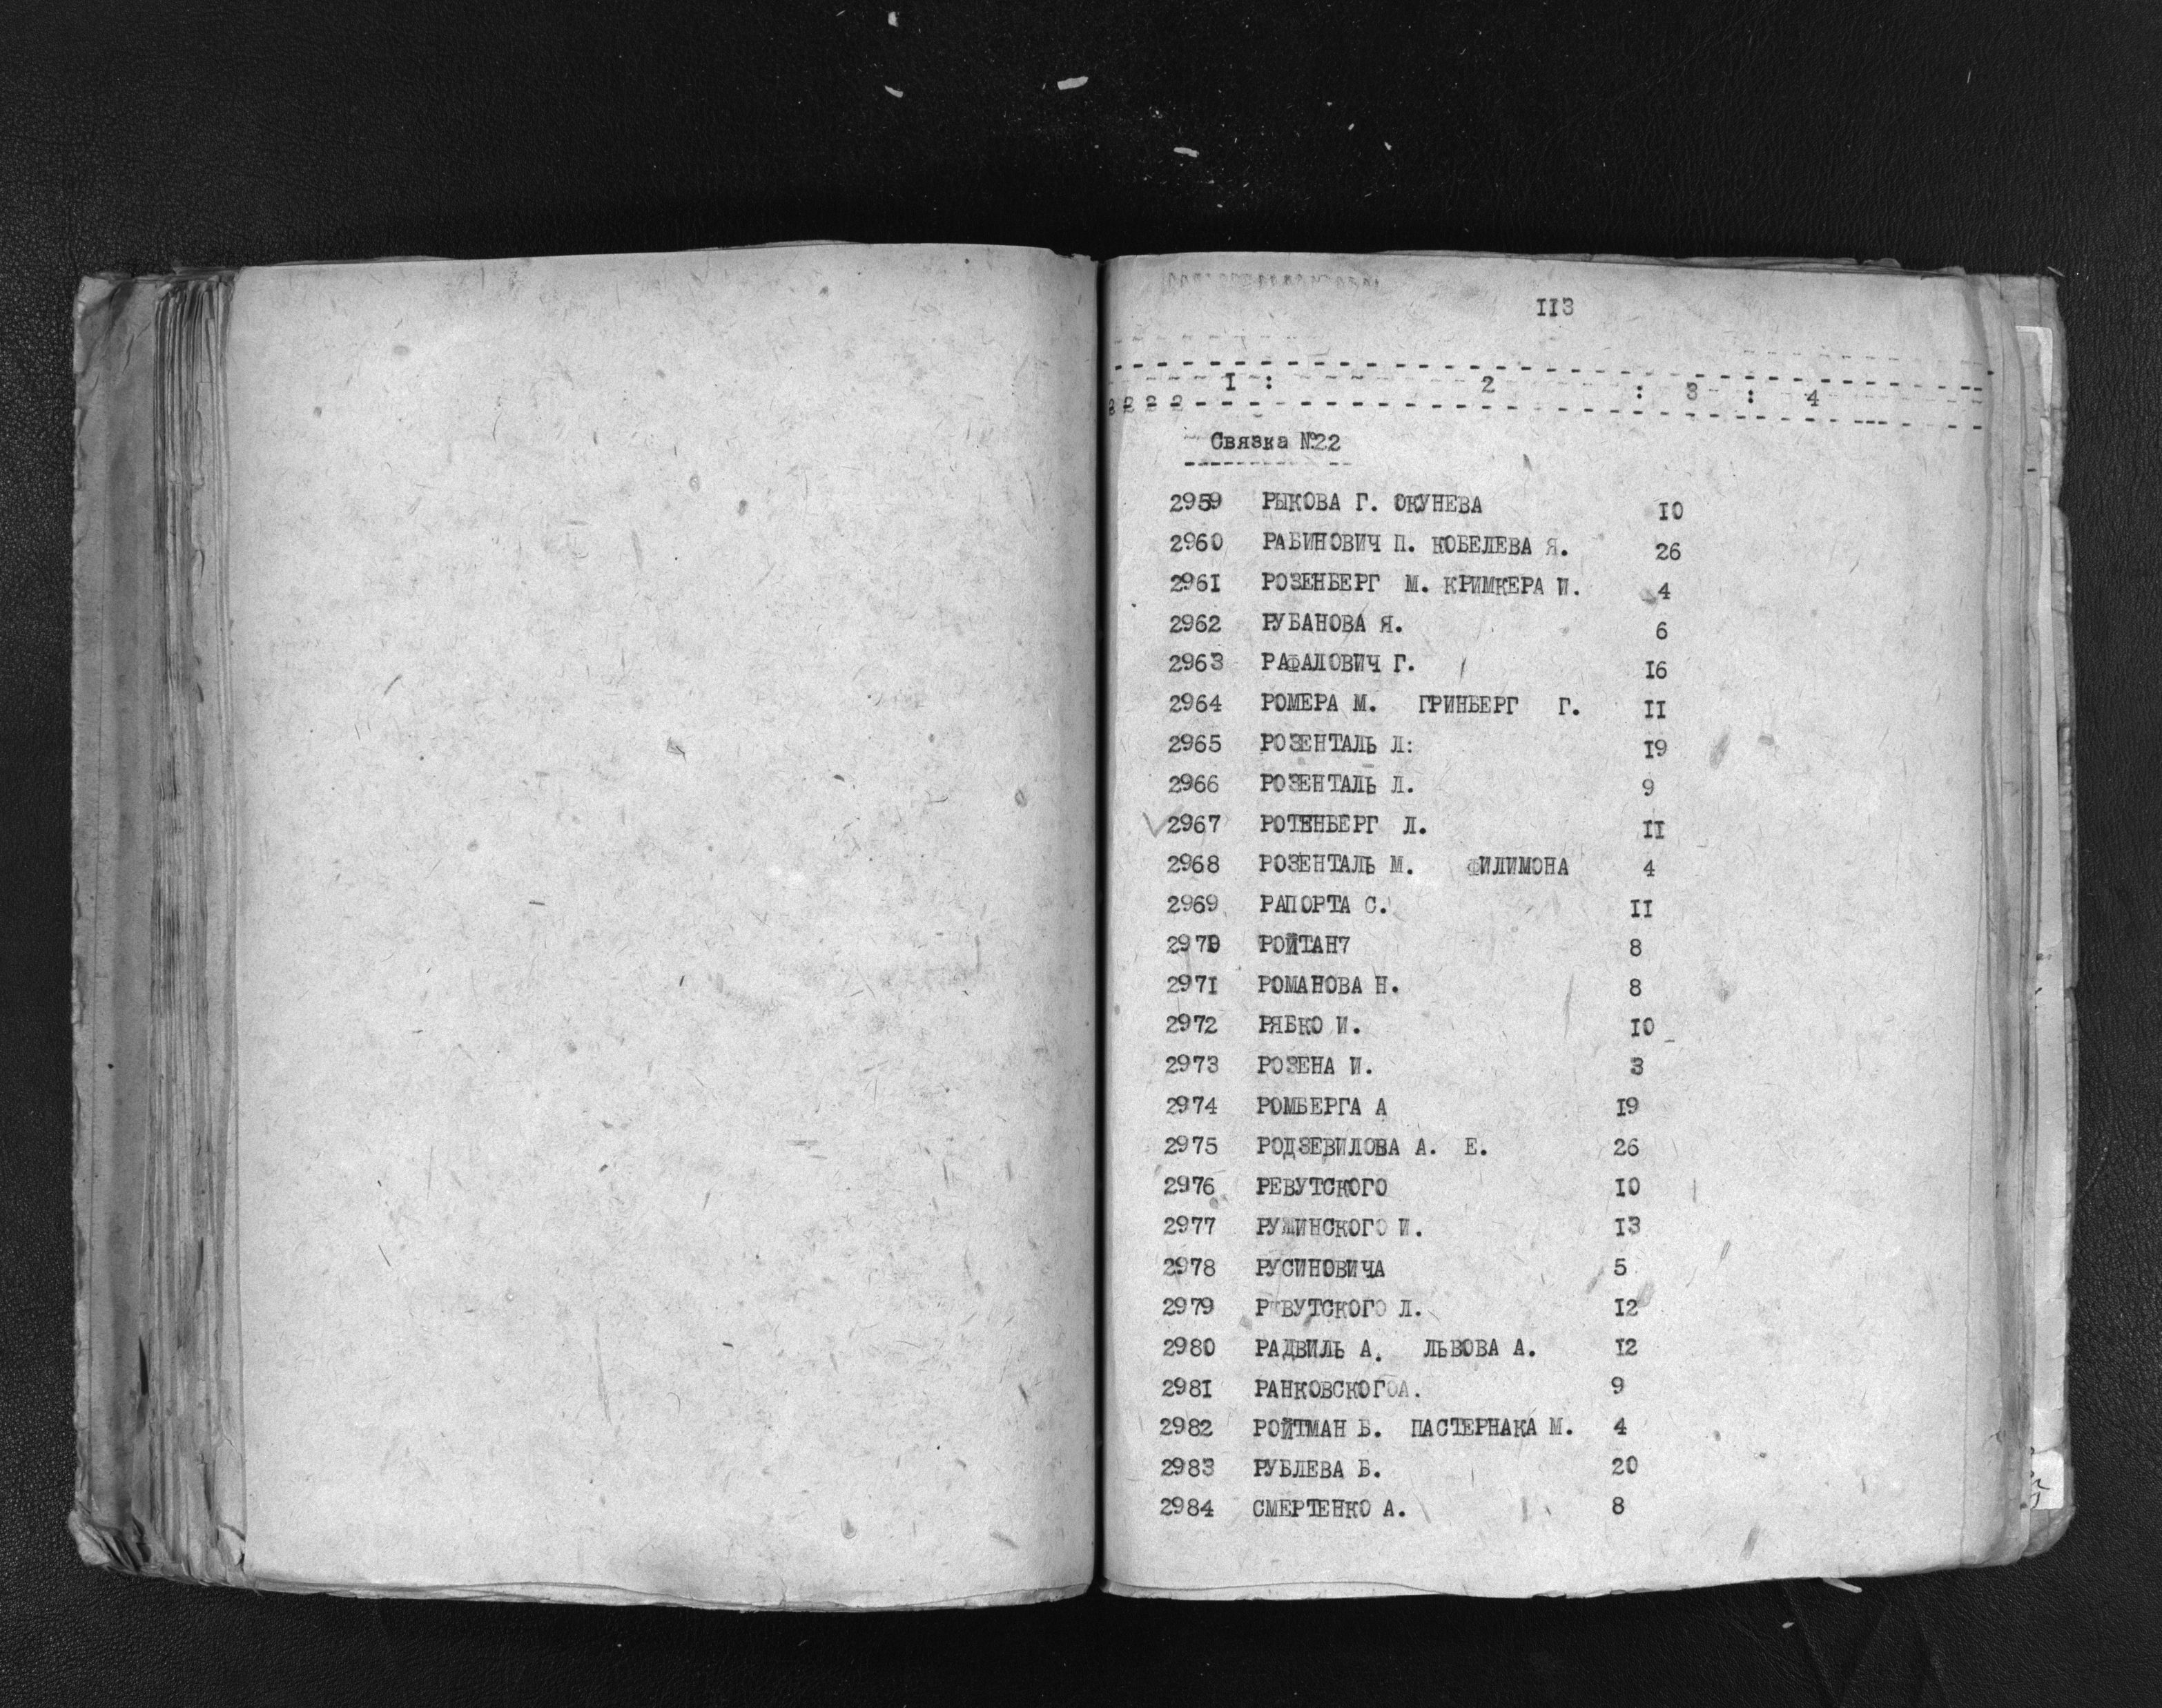 II3
I : 2 : 3 : 4
Связка №22
2959 РЫКОВА Г. ОКУНЕВА IO
2960 РАБИНОВИЧ П. КОБЕЛЕВА Я. 26
296I РОЗЕНБЕРГ М. КРИМКЕРА И. 4
2962 РУБАНОВА Я. 6
2963 РАФАЛОВИЧ Г. I6
2964 РОМЕРА М. ГРИНБЕРГ Г. II
2965 РОЗЕНТАЛЬ Л: I9
2966 РОЗЕНТАЛЬ Л. 9
2967 РОТЕНБЕРГ Л. II
2968 РОЗЕНТАЛЬ М. ФИЛИМОНА 4
2969 РАПОРТА С. II
2970 РОЙТАН7 8
297I РОМАНОВА Н. 8
2972 РЯБКО И. IO
2973 РОЗЕНА И. 3
2974 РОМБЕРГА А I9
2975 РОДЗЕВИЛОВА А. Е. 26
2976 РЕВУТСКОГО IO
2977 РУЖИНСКОГО И. I3
2978 РУСИНОВИЧА 5
2979 РЕВУТСКОГО Л. I2
2980 РАДВИЛЬ А. ЛЬВОВА А. I2
298I РАНКОВСКОГОА. 9
2982 РОЙТМАН Б. ПАСТЕРНАКА М. 4
2983 РУБЛЕВА Б. 20
2984 СМЕРТЕНКО А. 8